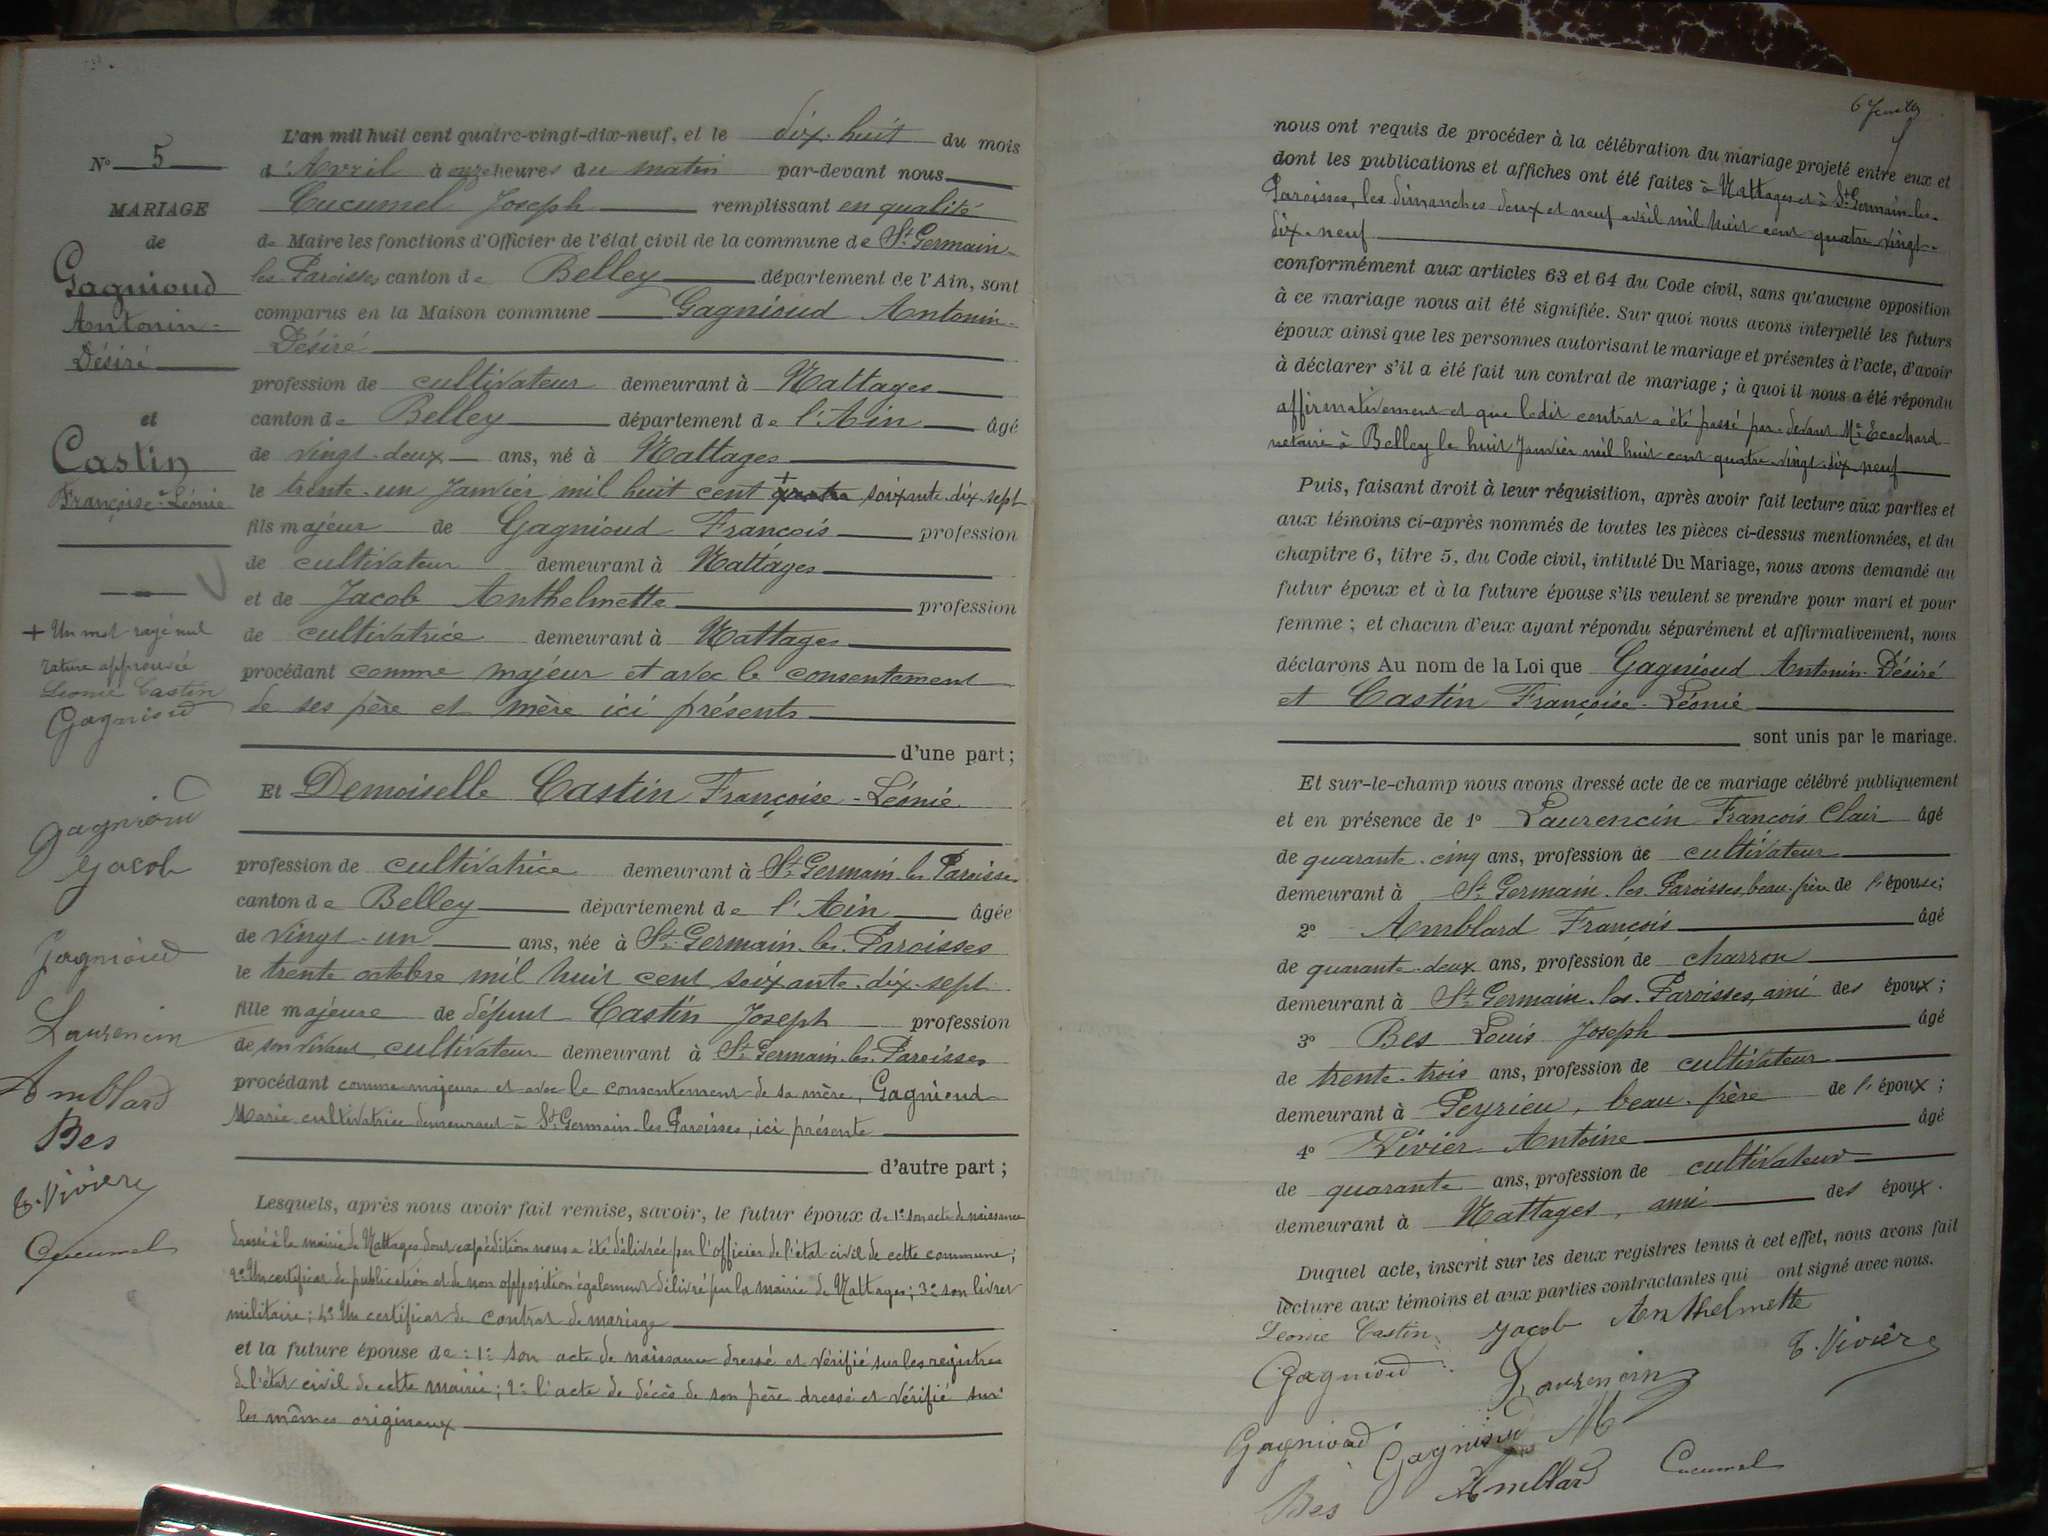 N° 5
MARIAGE
de
Gagnioud
Antonin-
Désiré
et
Castin
Françoise-Léonie
+ Un mot rayé nul
rature approuvée
Leonie Castin
Gagnioud
Gagnioud
Jacob
Gagnioud
Laurencin
Amblard
Bes
Vivier
Cucumel
L'an mil huit cent quatre-vingt-dix-neuf, et le dix-huit du mois
d'Avril à onze heures du matin par-devant nous
Cucumel Joseph remplissant en qualité
de Maire les fonctions d'Officier de l'état civil de la commune de St Germain-
les Paroisses canton de Belley département de l'Ain, sont
comparus en la Maison commune Gagnioud Antonin-
Désiré
profession de cultivateur demeurant à Nattages
canton de Belley département de l'Ain âgé
de vingt-deux ans, né à Nattages
le trente-un Janvier mil huit cent + quatre soixante-dix-sept
fils majeur de Gagnioud François profession
de cultivateur demeurant à Nattages
et de Jacob Anthelmette profession
de cultivatrice demeurant à Nattages
procédant comme majeur et avec le consentement
de ses père et mère ici présents
d'une part ;
Et Demoiselle Castin Françoise-Léonie
profession de cultivatrice demeurant à St Germain-les-Paroisses
canton de Belley département de l'Ain âgée
de vingt-un ans, née à St Germain-les-Paroisses
le trente octobre mil huit cent soixante-dix-sept
fille majeure de défunt Castin Joseph profession
de son vivant cultivateur demeurant à St Germain-les-Paroisses
procédant comme majeure et avec le consentement de sa mère, Gagnioud
Marie cultivatrice demeurant à St Germain-les-Paroisses, ici présente
d'autre part ;
Lesquels, après nous avoir fait remise, savoir, le futur époux de 1° son acte de naissance
dressé à la mairie de Nattages dont expédition nous a été délivrée par l'officier de l'état civil de cette commune ;
2° Un certificat de publication et de non opposition également délivré par la mairie de Nattages ; 3° son livret
militaire ; 4° Un certificat de contrat de mariage
et la future épouse de : 1° son acte de naissance dressé et vérifié sur les registres
de l'état civil de cette mairie ; 2° l'acte de décès de son père dressé et vérifié sur
les mêmes originaux
nous ont requis de procéder à la célébration du mariage projeté entre eux et
dont les publications et affiches ont été faites à Nattages et à St Germain-les-
Paroisses, les dimanches deux et neuf avril mil huit cent quatre vingt-
dix-neuf
conformément aux articles 63 et 64 du Code civil, sans qu'aucune opposition
à ce mariage nous ait été signifiée. Sur quoi nous avons interpellé les futurs
époux ainsi que les personnes autorisant le mariage et présentes à l'acte, d'avoir
à déclarer s'il a été fait un contrat de mariage ; à quoi il nous a été répondu
affirmativement et que ledit contrat a été passé par-devant Me Ecochard
notaire à Belley le huit Janvier mil huit cent quatre-vingt-dix-neuf
Puis, faisant droit à leur réquisition, après avoir fait lecture aux parties et
aux témoins ci-après nommés de toutes les pièces ci-dessus mentionnées, et du
chapitre 6, titre 5, du Code civil, intitulé Du Mariage, nous avons demandé au
futur époux et à la future épouse s'ils veulent se prendre pour mari et pour
femme ; et chacun d'eux ayant répondu séparément et affirmativement, nous
déclarons Au nom de la Loi que Gagnioud Antonin-Désiré
et Castin Françoise-Léonie
sont unis par le mariage.
Et sur-le-champ nous avons dressé acte de ce mariage célébré publiquement
et en présence de 1° Laurencin François Clair âgé
de quarante-cinq ans, profession de cultivateur
demeurant à St Germain-les-Paroisses, beau-frère de l'épouse ;
2° Amblard François âgé
de quarante-deux ans, profession de charron
demeurant à St Germain-les-Paroisses, ami des époux ;
3° Bes Louis Joseph âgé
de trente-trois ans, profession de cultivateur
demeurant à Peyrieu, beau-frère de l'époux ;
4° Vivier Antoine âgé
de quarante ans, profession de cultivateur
demeurant à Nattages, ami des époux.
Duquel acte, inscrit sur les deux registres tenus à cet effet, nous avons fait
lecture aux témoins et aux parties contractantes qui ont signé avec nous.
Leonie Castin Jacob Anthelmette
Gagnioud Laurencin Vivier
Gagnioud Gagnioud M
Bes Amblard Cucumel